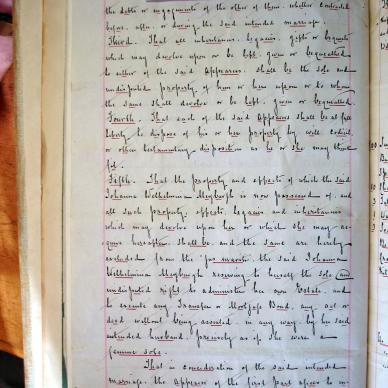 the debts or engagements of the other of them, whether contracted
before, after, or during the said intended marriage.
Third. That all inheritances, legacies, gifts or bequests
which may devolve upon or be left, given or bequeathed
to either of the said Appearers, shall be the sole and
undisputed property of him or her upon or to whom
the same shall devolve or be left, given or bequeathed.
Fourth. That each of the said Appearers shall be at full
liberty to dispose of his or her property by will, codicil,
or other testamentary disposition as he or she may think
fit.
Fifth. That the property and effects of which the said
Johanna Wilhelmina Meyburgh is now possessed of, and
all such property, effects, legacies and inheritances
which may devolve upon her or which she may ac-
quire hereafter shall be and the same are hereby
excluded from the "jus mariti," the said Johanna
Wilhelmina Meyburgh reserving to herself the sole and
undisputed right to administer her own Estate, and
to execute any Transfer or Mortgage Bond, any act or
deed without being assisted in any way by her said
intended husband, precisely as if she were a
femme sole.
That in consideration of the said intended
marriage, the Appearer of the first part agrees to